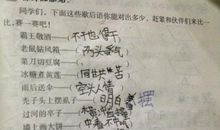 同学们,下面这些歇后语你能对出多少,赶紧和伙伴们来比
比,赛一赛吧!
霸王敬酒——不干也得干
老鼠钻风箱——两头受气
菜刀切豆腐——
冰糖煮黄莲——同甘共苦
雨后送伞——空头人情
秃子头上摆虱子——明白着 摆
过河的卒子——
墙上画大饼——中看不